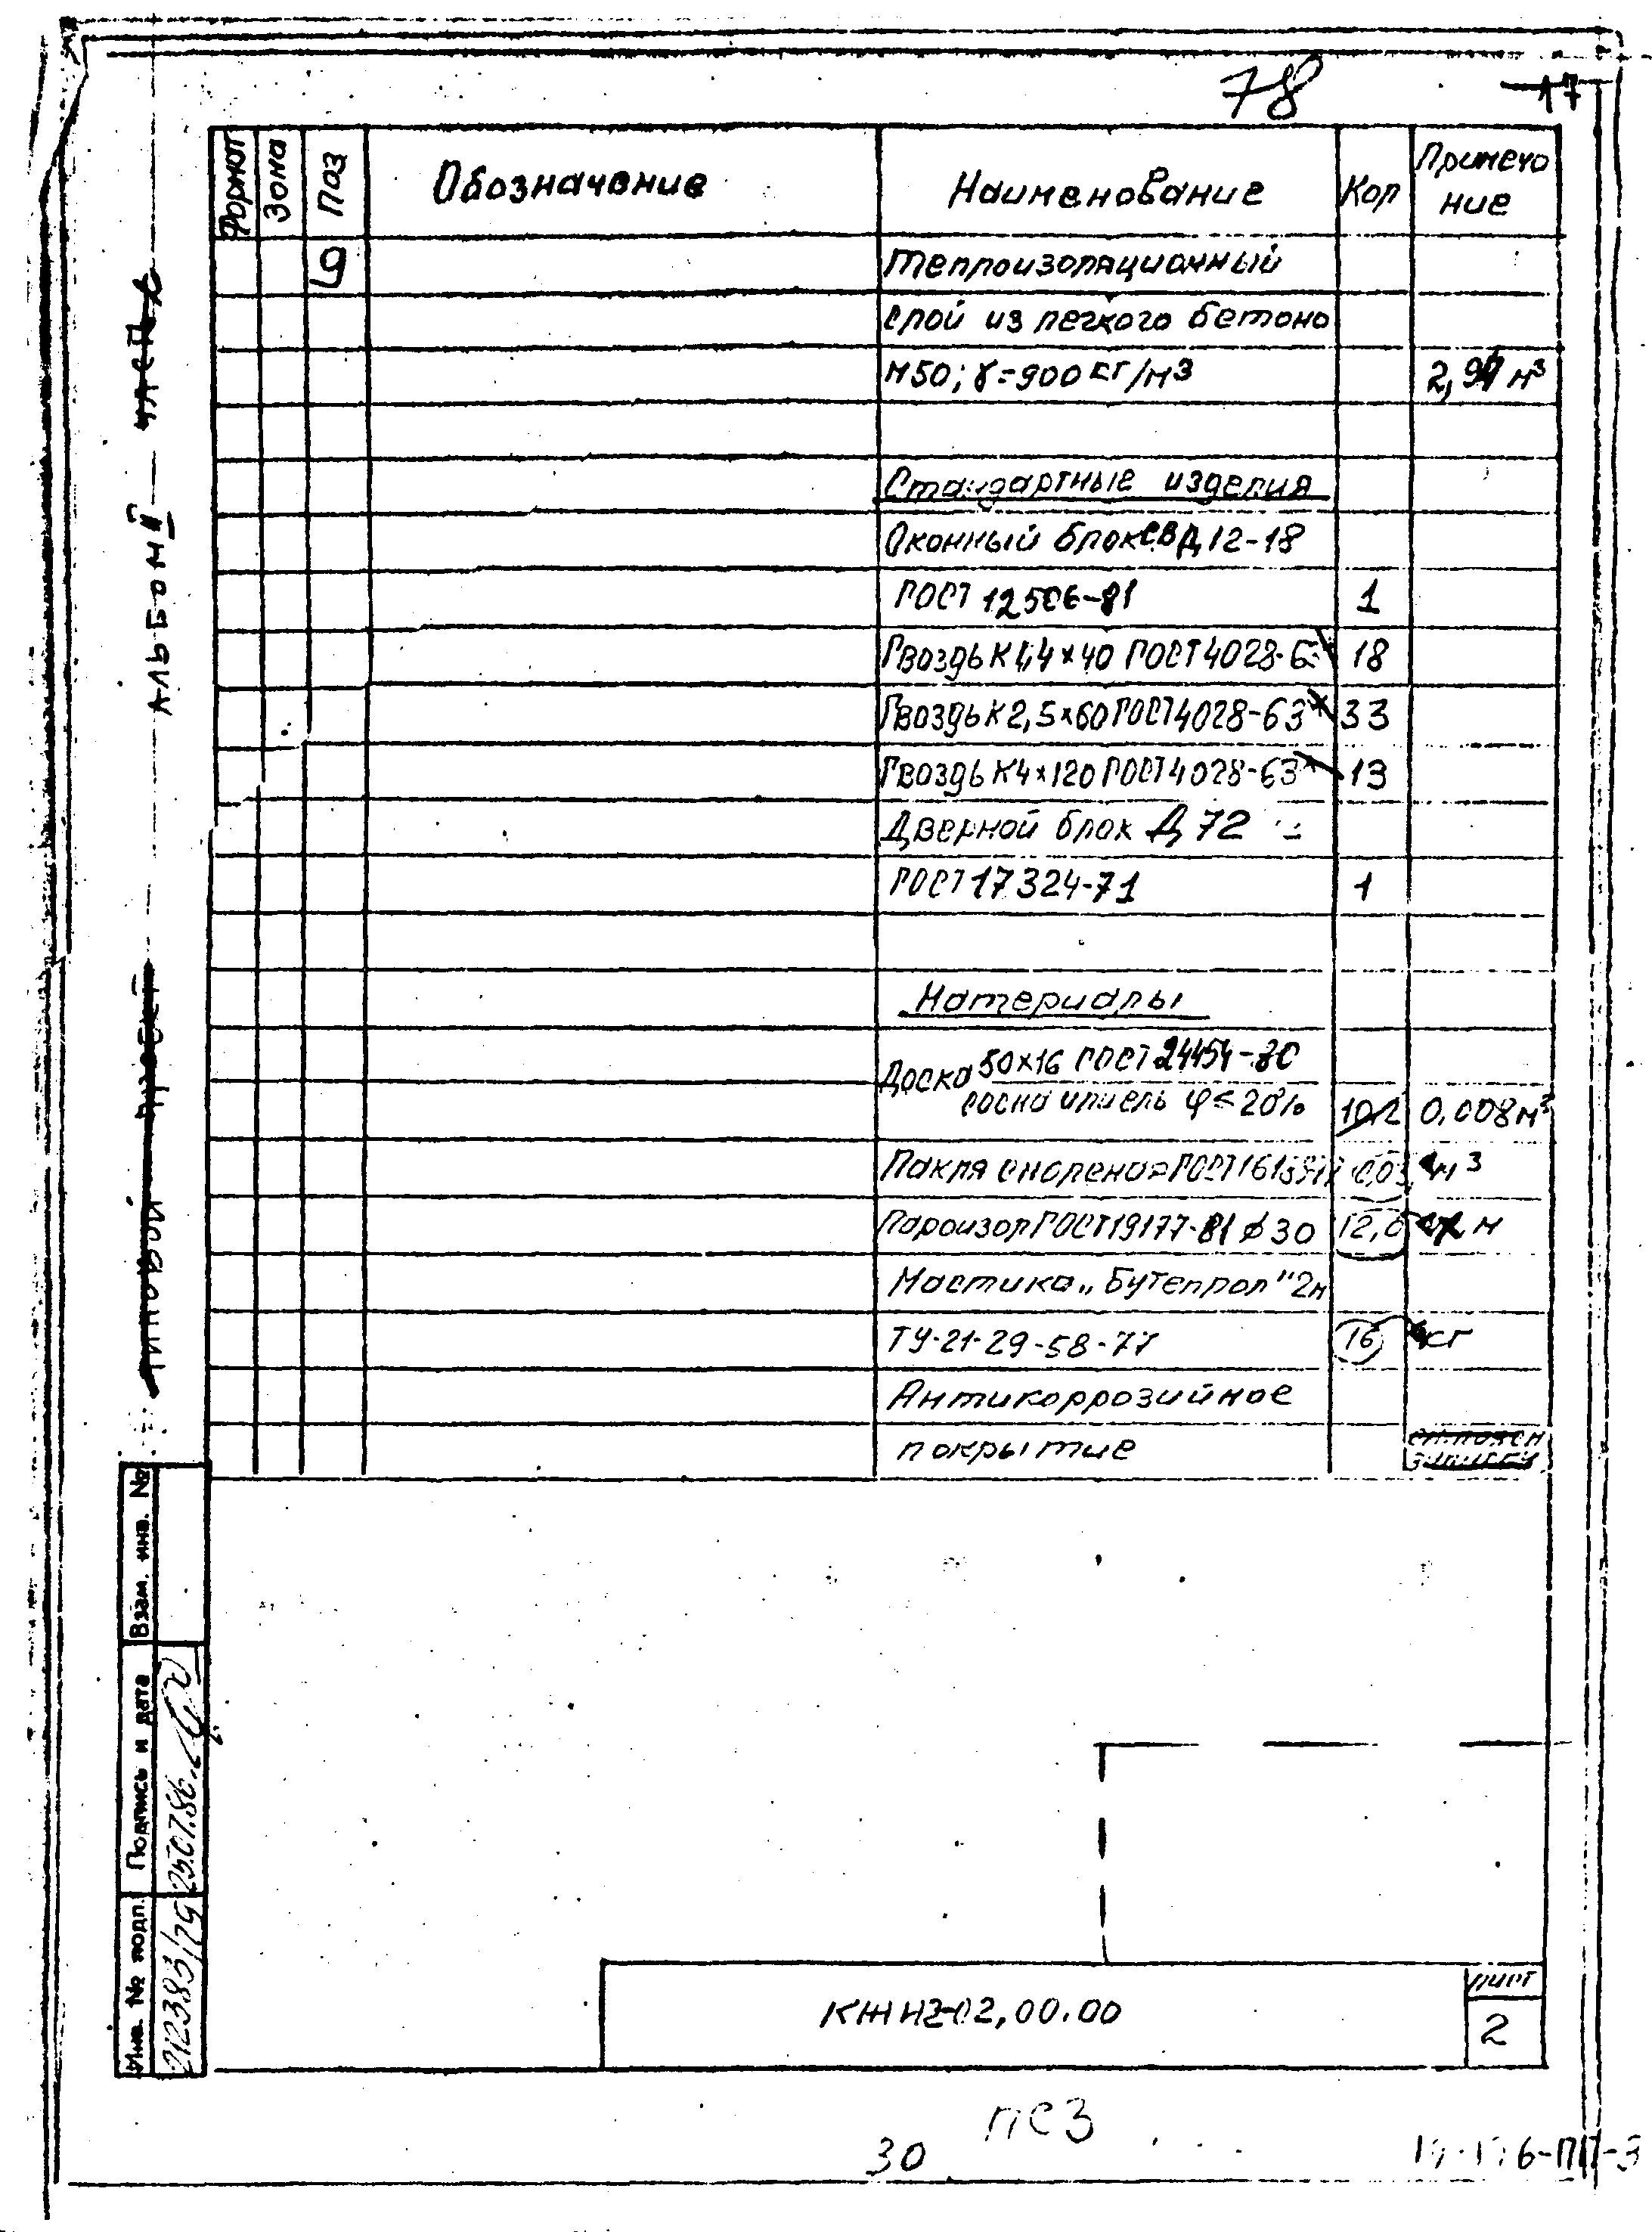 78
17
Формат Зона Поз Обозначение Наименование Кол Примеча
ние
9 Теплоизоляционный
слой из легкого бетона
М50; γ=900 кг/м3 2,9 м3
Стандартные изделия
Оконный блок СВД 12-18
ГОСТ 12506-81 1
Гвоздь К 1,4×40 ГОСТ 4028-63 18
Гвоздь К 2,5×60 ГОСТ 4028-63* 33
Гвоздь К 4×120 ГОСТ 4028-63* 13
Дверной блок Д 72
ГОСТ 17324-71 1
Материалы
Доска 50×16 ГОСТ 24454-80
сосна и ель φ≤20% 10,2 0,008 м3
Пакля смоленая ГОСТ 0,03 м3
Пороизол ГОСТ 19177-81 ϕ30 12,6 м
Мастика „Бутепрол" 2м
ТУ-21-29-58-77 16 кг
Антикоррозийное
покрытие
КЖИ2-02,00.00
лист
2
ПС3
30
Типовой проект Альбом II часть
Взам. инв. №
Подпись и дата
25.07.86
Инв. № подп.
212383/79